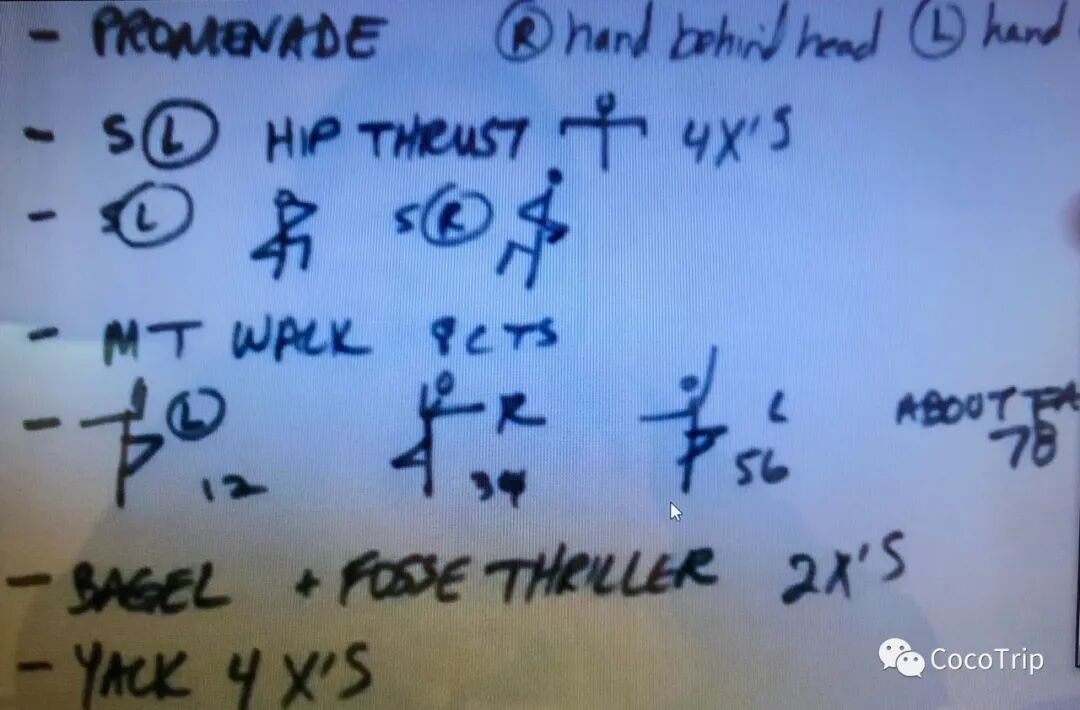 - PROMENADE Ⓡ hand behind head Ⓛ hand
- S Ⓛ HIP THRUST 4X'S
- S Ⓛ S Ⓡ
- MT WALK 8 CTS
- Ⓛ 12 R 34 L 56 ABOUT FA 78
- BAGEL + FOSSE THRILLER 2X'S
- YACK 4 X'S
CocoTrip